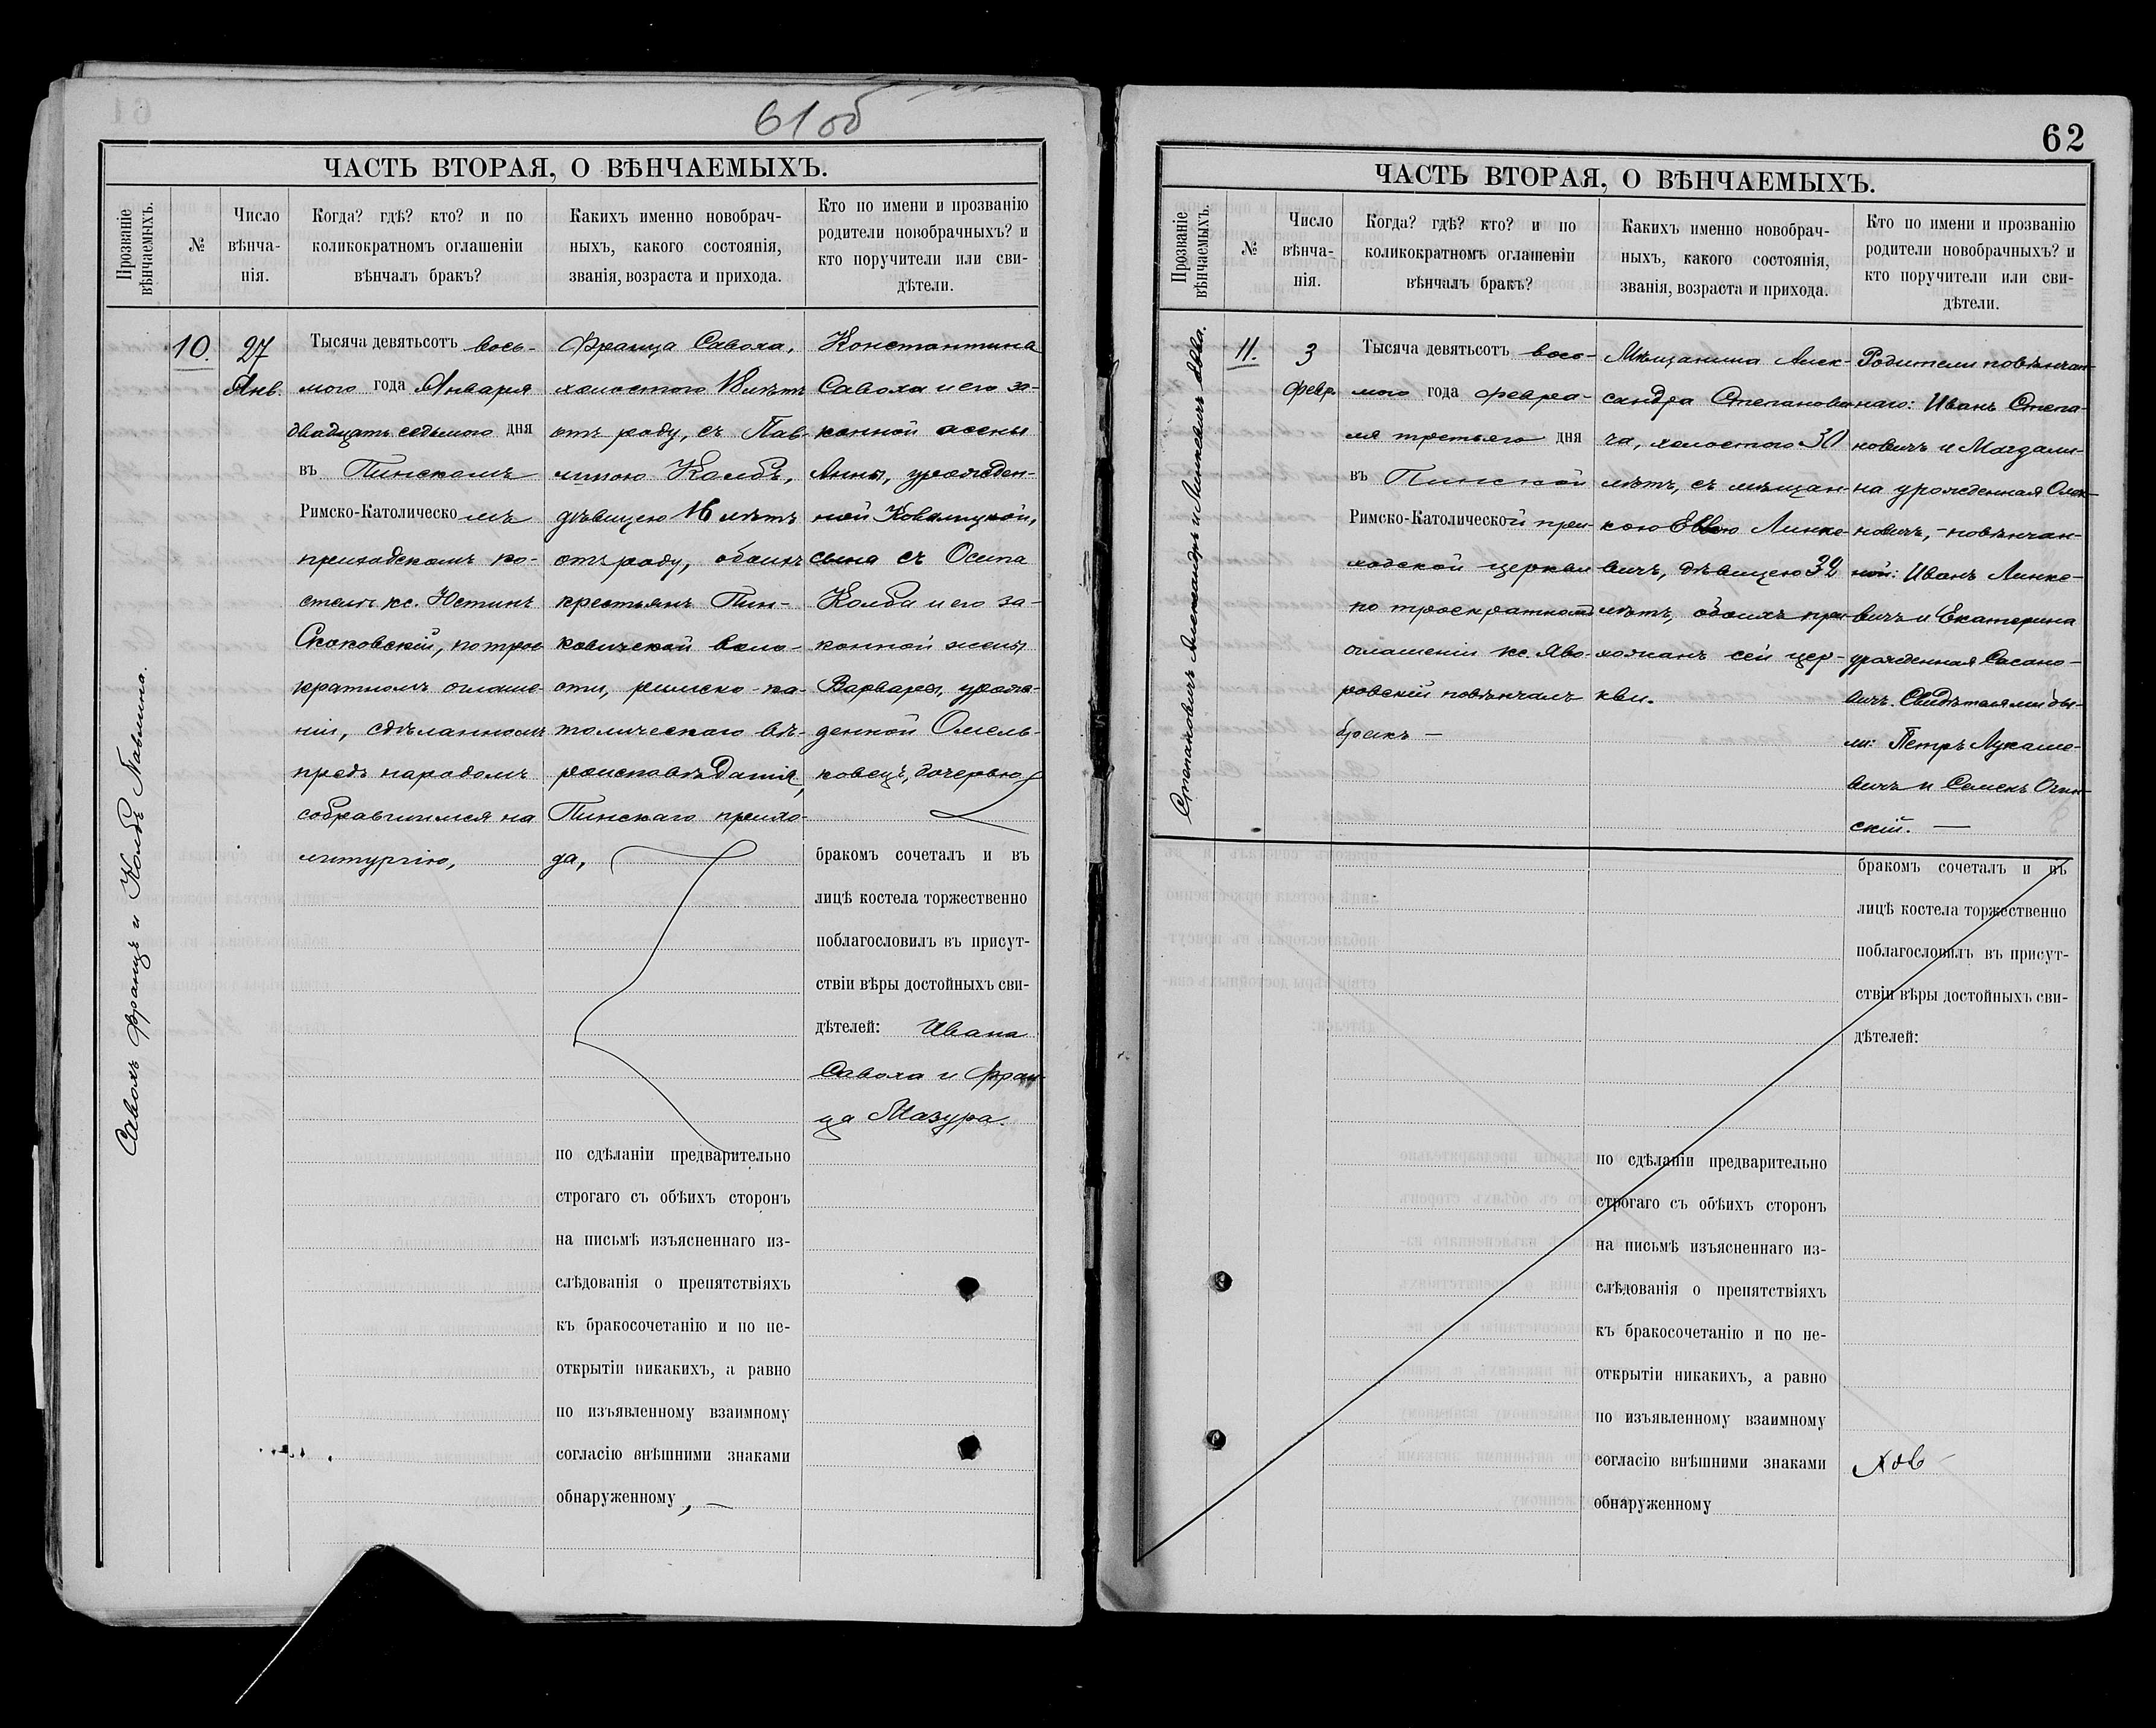 61 об
ЧАСТЬ ВТОРАЯ, О ВѢНЧАЕМЫХЪ.
Прозваніе
вѣнчаемыхъ.
№
Число
вѣнча-
нія.
Когда? гдѣ? кто? и по
коликократномъ оглашеніи
вѣнчалъ бракъ?
Какихъ именно новобрач-
ныхъ, какого состоянія,
званія, возраста и прихода.
Кто по имени и прозванію
родители новобрачныхъ? и
кто поручители или сви-
дѣтели.
Савохъ Францъ и Колбъ Павлина.
10.
27
Янв.
Тысяча девятьсотъ вось-
мого года Января
двадцать седьмого дня
въ Пинскомъ
Римско-Католическомъ
приходскомъ ко-
стелѣ кс. Юстинъ
Скоковскій, по трое
кратномъ оглаше-
ніи, сдѣланномъ
предъ народомъ
собравшимся на
литургію,
Франца Савоха,
холостого 18 лѣтъ
отъ роду, съ Пав-
линою Колбъ,
дѣвицею 16 лѣтъ
отъ роду, обоихъ
крестьянъ Пин-
ковичской воло-
сти, римско-ка-
толическаго вѣ-
роисповѣданія,
Пинскаго прихо-
да,
по сдѣланіи предварительно
строгаго съ обѣихъ сторонъ
на письмѣ изъясненнаго из-
слѣдованія о препятствіяхъ
къ бракосочетанію и по не-
открытіи никакихъ, а равно
по изъявленному взаимному
согласію внѣшними знаками
обнаруженному, —
Константина
Савоха и его за-
конной жены
Анны, урожден-
ной Ковалицкой,
сына съ Осипа
Колба и его за-
конной жены
Варвары, урож-
денной Омель-
ковецъ, дочерью
бракомъ сочеталъ и въ
лицѣ костела торжественно
поблагословилъ въ присут-
ствіи вѣры достойныхъ сви-
дѣтелей: Ивана
Савоха и Фран-
ца Мазура.
62
ЧАСТЬ ВТОРАЯ, О ВѢНЧАЕМЫХЪ.
Прозваніе
вѣнчаемыхъ.
№
Число
вѣнча-
нія.
Когда? гдѣ? кто? и по
коликократномъ оглашеніи
вѣнчалъ бракъ?
Какихъ именно новобрач-
ныхъ, какого состоянія,
званія, возраста и прихода.
Кто по имени и прозванію
родители новобрачныхъ? и
кто поручители или сви-
дѣтели.
Степановичъ Александръ и Линкевичъ Евва.
11.
3
Февр.
Тысяча девятьсотъ вось-
мого года Февра-
ля третьяго дня
въ Пинской
Римско-Католической при-
ходской церкви
по троекратномъ
оглашеніи кс. Яво-
ровскій повѣнчалъ
бракъ —
Мѣщанина Алек-
сандра Степанови-
ча, холостого 30
лѣтъ, съ мѣщан-
кою Еввою Линке
вичъ, дѣвицею 32
лѣтъ, обоихъ при-
хожанъ сей цер-
кви.
по сдѣланіи предварительно
строгаго съ обѣихъ сторонъ
на письмѣ изъясненнаго из-
слѣдованія о препятствіяхъ
къ бракосочетанію и по не-
открытіи никакихъ, а равно
по изъявленному взаимному
согласію внѣшними знаками
обнаруженному
Родители повѣнчан-
наго: Иванъ Степа-
новичъ и Магдали-
на урожденная
новичъ, – повѣнчан-
ной: Иванъ Линке-
вичъ и Екатерина
урожденная Сасано-
вичъ. Свидѣтелями бы-
ли: Петръ Лукаше-
вичъ и Семенъ Огин-
скій. —
бракомъ сочеталъ и въ
лицѣ костела торжественно
поблагословилъ въ присут-
ствіи вѣры достойныхъ сви-
дѣтелей: